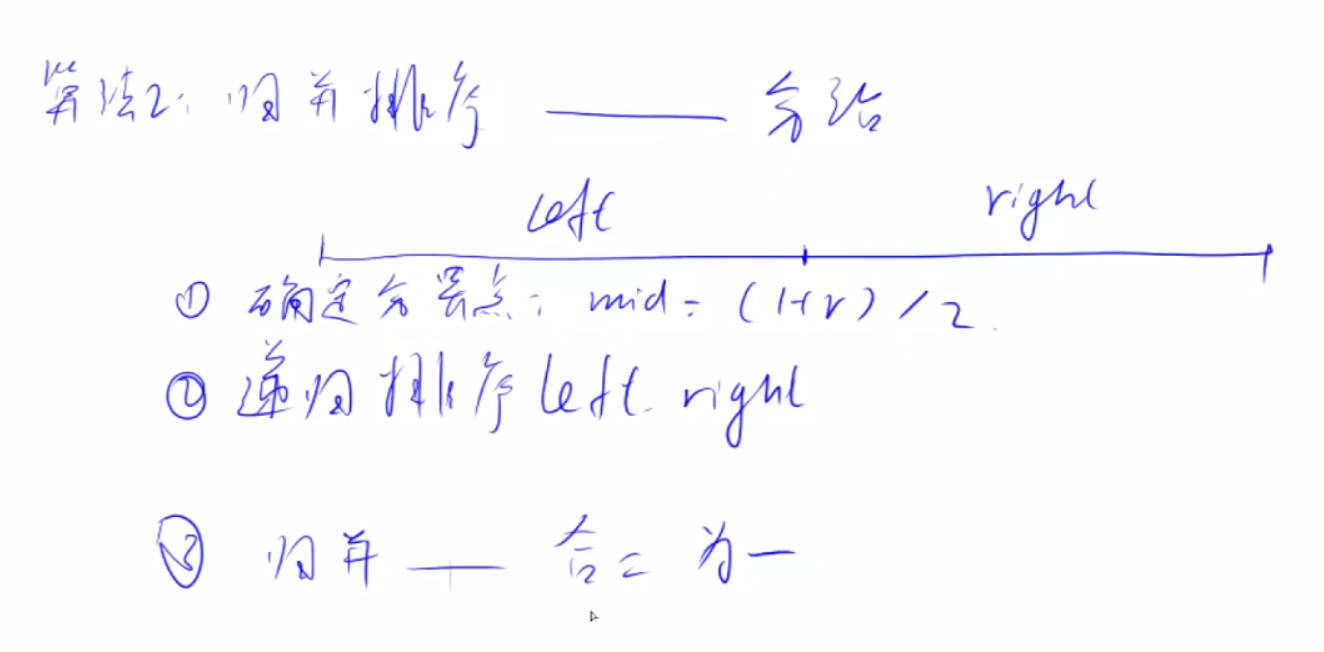 算法2: 归并排序 —— 分治
left right
① 确定分界点: mid = (l+r)/2
② 递归排序 left right
③ 归并 —— 合二为一